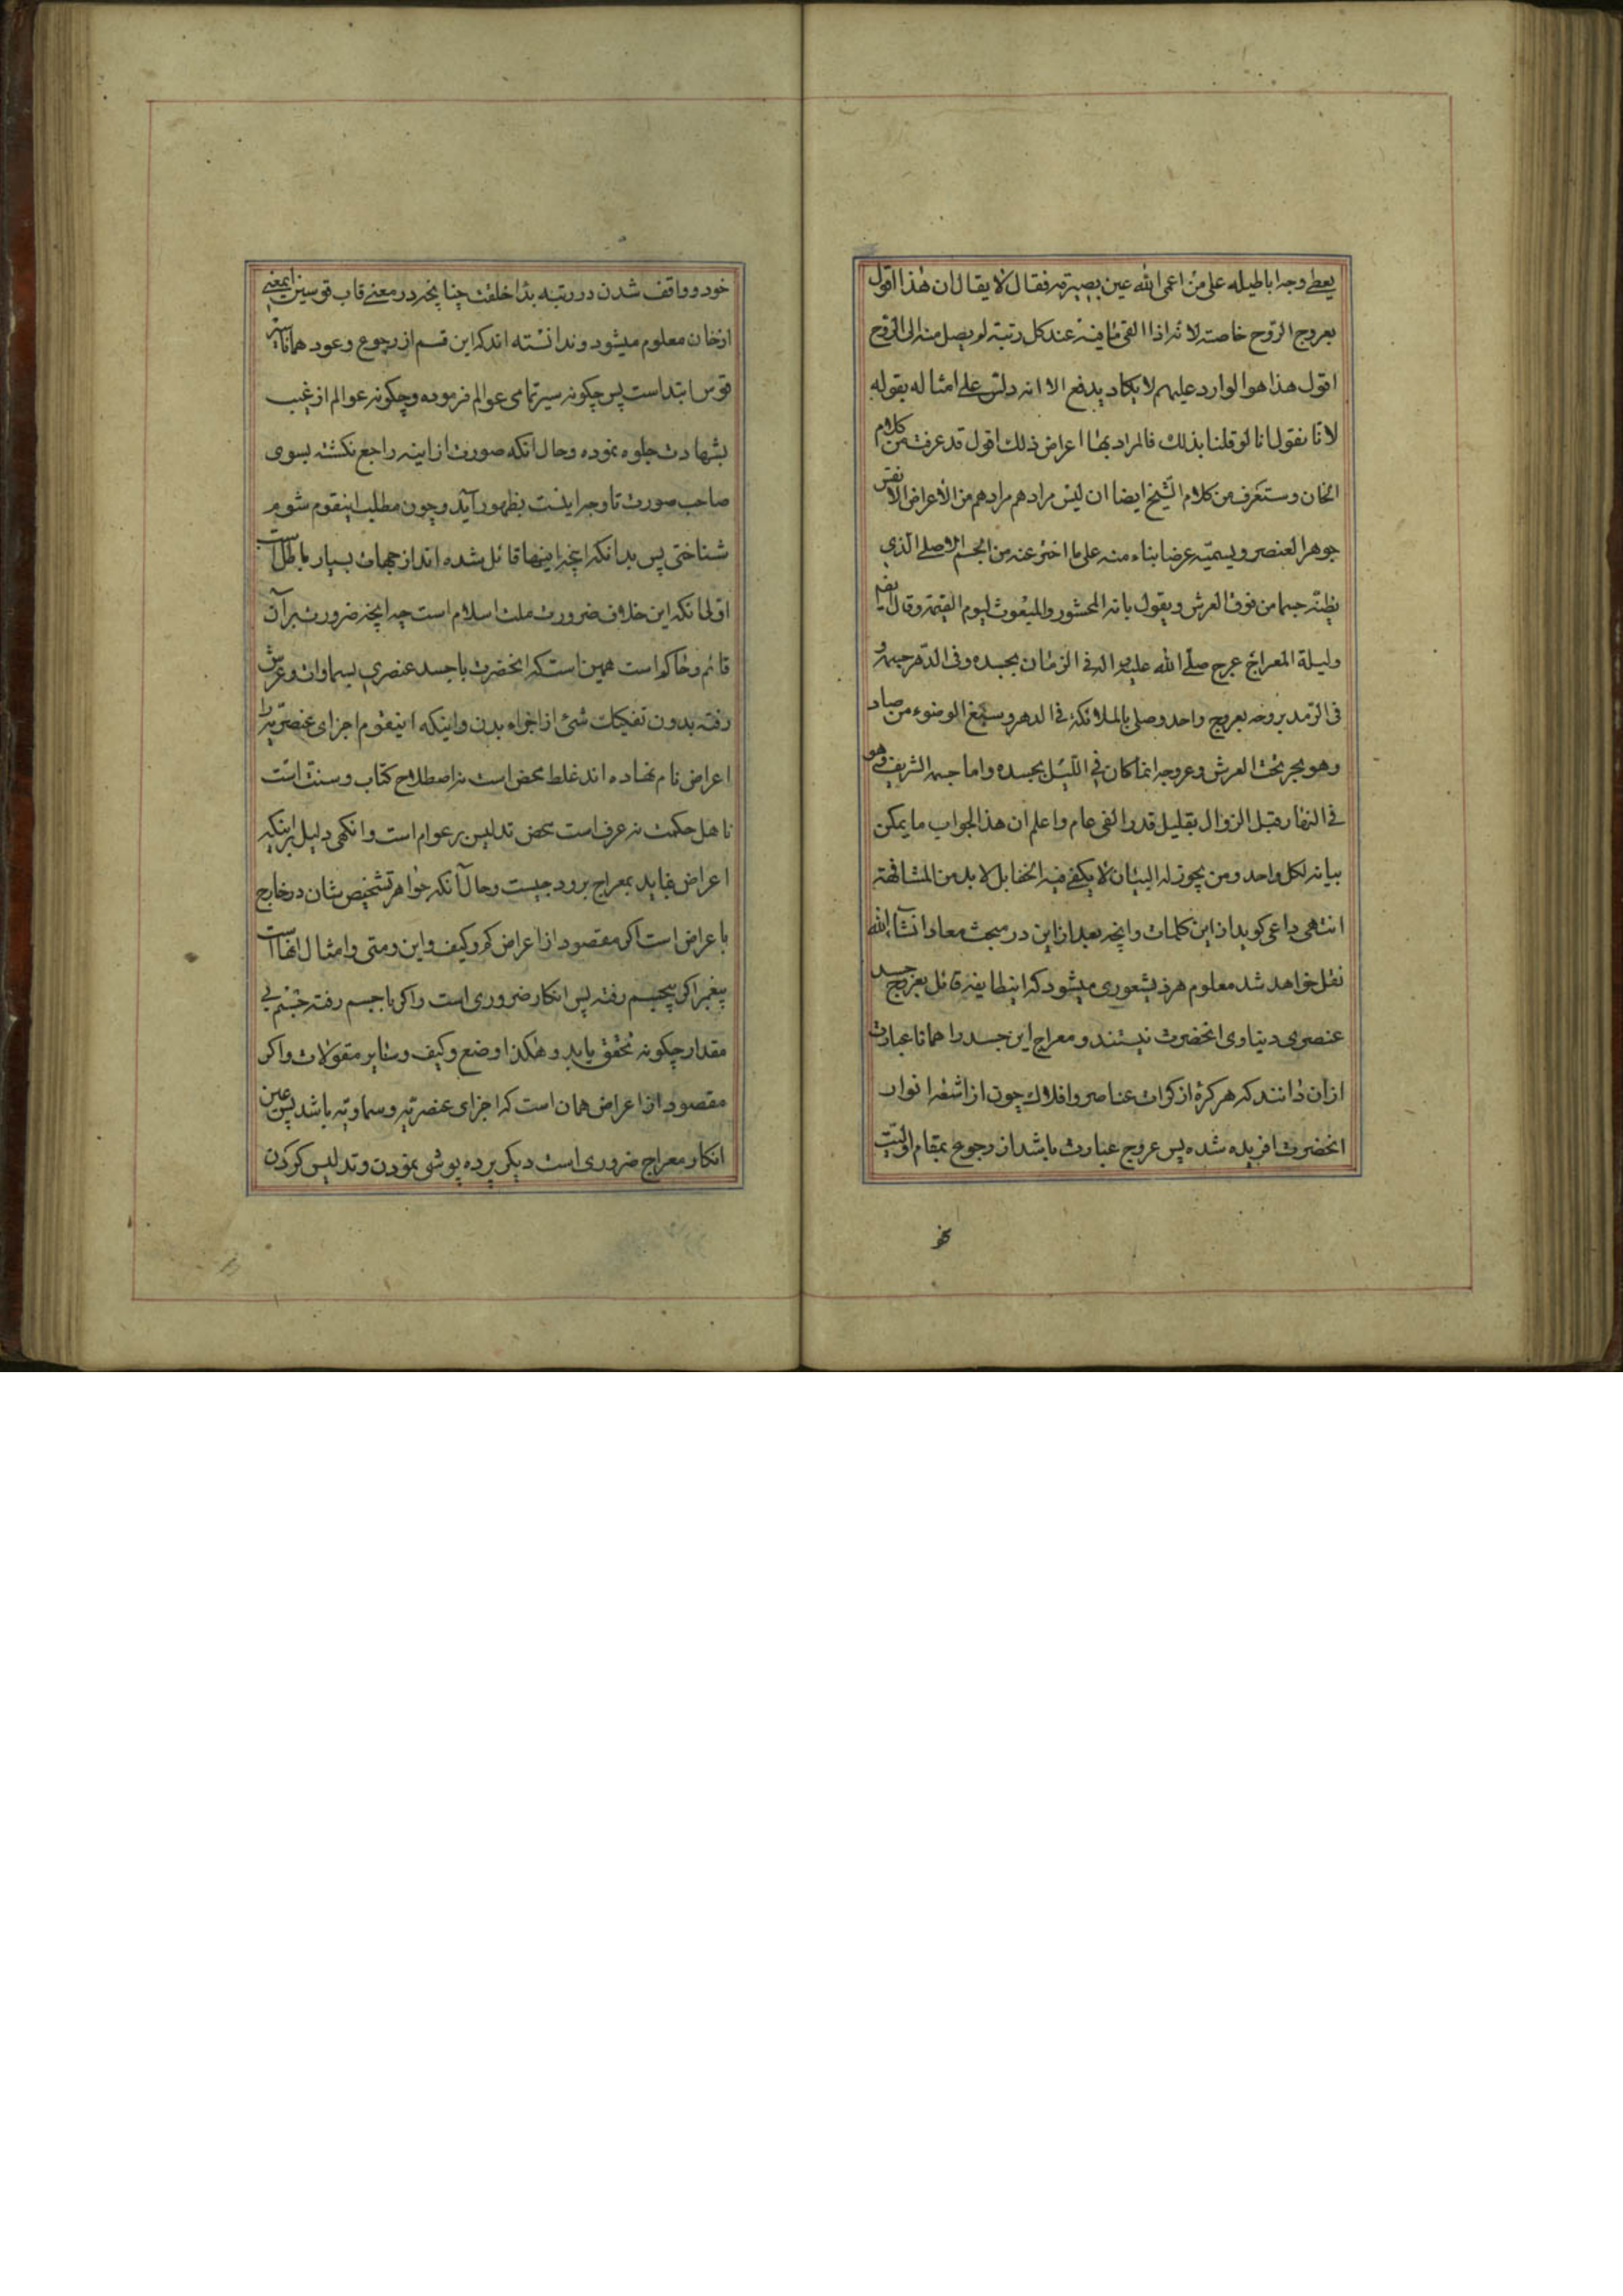 يعطے وجه اباطيله على من اعمى الله عين بصيرته فقال لا يقال ان هذا القول
بعروج الروح خاصته لانه اذا القى ما فيه عند كل رتبة لم يصل منه الى الروح
اقول هذا هو الوارد عليهم لا يكاد يدفع الا انه دلس على امثاله بقوله
لانا نقول انا لو قلنا بذلك فالمراد بها اعراض ذلك اقول قد عرفت من كلام
الخان وستعرف من كلام الشيخ ايضا ان ليس مرادهم من الأعراض الا نفس
جوهر العنصر ويسميه عرضا بناء منه على ما اخبر عنه من الجسم الاصلے الذي
يظنه جسما من فوق العرش ويقول بانه المحشور والمبعوث ليوم القيمة وقال
وليلة المعراج عرج صلے الله عليه واله في الزمان بجسده وفى الدهر جسمه و
فى السرمد بروحه بعروج واحد وصلى بالملائكة فى الدهر وسبغ الوضوء من صاد
وهو بحر تحت العرش وعروجه انما كان في الليل بجسده واما جسمه الشريف فهو
فى النهار قبل الزوال بقليل قدر الفى عام واعلم ان هذا الجواب ما يمكن
بيانه لكل واحد ومن يجوز له البيان لا يكفے فيه الخط بل لا بد من المشافهة
انتهى داعى كويد از اين كلمات وانچه بعد از اين در مبحث معاد انشاء الله
نقل خواهد شد معلوم هر ذيشعورى ميشود كه اينطايفه قائل بعروج جسد
عنصرى دنياوى انحضرت نيستند و معراج اين جسد را همانا عبارت
از ان دانند كه هر كرهٔ از كرات عناصر وافلاك چون از اشعهٔ انوار
انحضرت افريده شده پس عروج عبارت باشد از رجوع بمقام اوليت
خود
خود و واقف شدن در رتبه بدأ خلقت چنانچه در معنے قاب قوسين اينمعنے
از خان معلوم ميشود وندانسته اند كه اين قسم از رجوع وعود همانا سير
قوس ابتداست پس چكونه سير تمامى عوالم فرموده وچكونه عوالم از غيب
بشهادت جلوه نموده وحال انكه صورت از اينه راجع نكشته بسوى
صاحب صورت تا وجه اينست بظهور آيد وچون مطلب اينقوم شوم
شناختى پس بدانكه انچه اينها قائل شده اند از جهات بسيار باطل است
اول انكه اين خلاف ضرورت ملت اسلام است چه انچه ضرورت بر آن
قائم وحاكم است همين است كه انحضرت با جسد عنصري بسماوات وعرش
رفته بدون تفكيك شئ از اجزاء بدن واينكه اينقوم اجزاى عنصريه را
اعراض نام نهاده اند غلط محض است نه اصطلاح كتاب وسنت است
نه اهل حكمت نه عرف است محض تدليس بر عوام است وانكهى دليل بر اينكه
اعراض نبايد بمعراج برود چيست وحال آنكه جواهر تشخيص شان در خارج
با عراض است اكر مقصود از اعراض كم وكيف واين ومتى وامثال انها است
پيغمبر اكر بيجسم رفته پس انكار ضرورى است واكر با جسم رفته جسم بے
مقدار چكونه تحقق يابد وهكذا وضع وكيف وساير مقولات واكر
مقصود از اعراض همان است كه اجزاى عنصريه وسماويه باشد پس عين
انكار معراج ضرورى است ديكر پرده پوشى نمودن وتدليس كردن